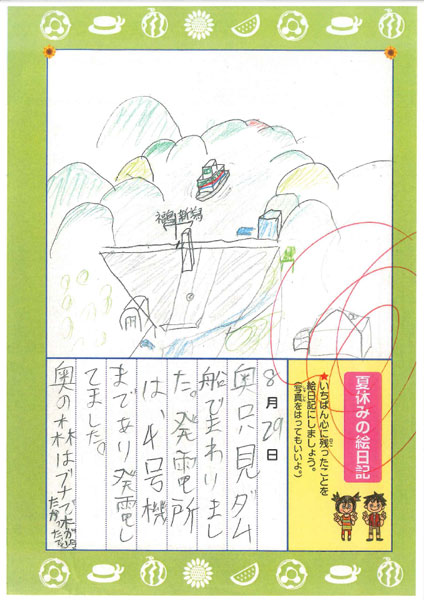 福島 新潟
夏休みの絵日記
★いちばん心に残ったことを
絵日記にしましょう。
(写真をはってもいいよ。)
8月29日
奥只見ダム
船でまわりまし
た。発電所
は、4号機
まであり発電し
てました。
奥の森はブナ